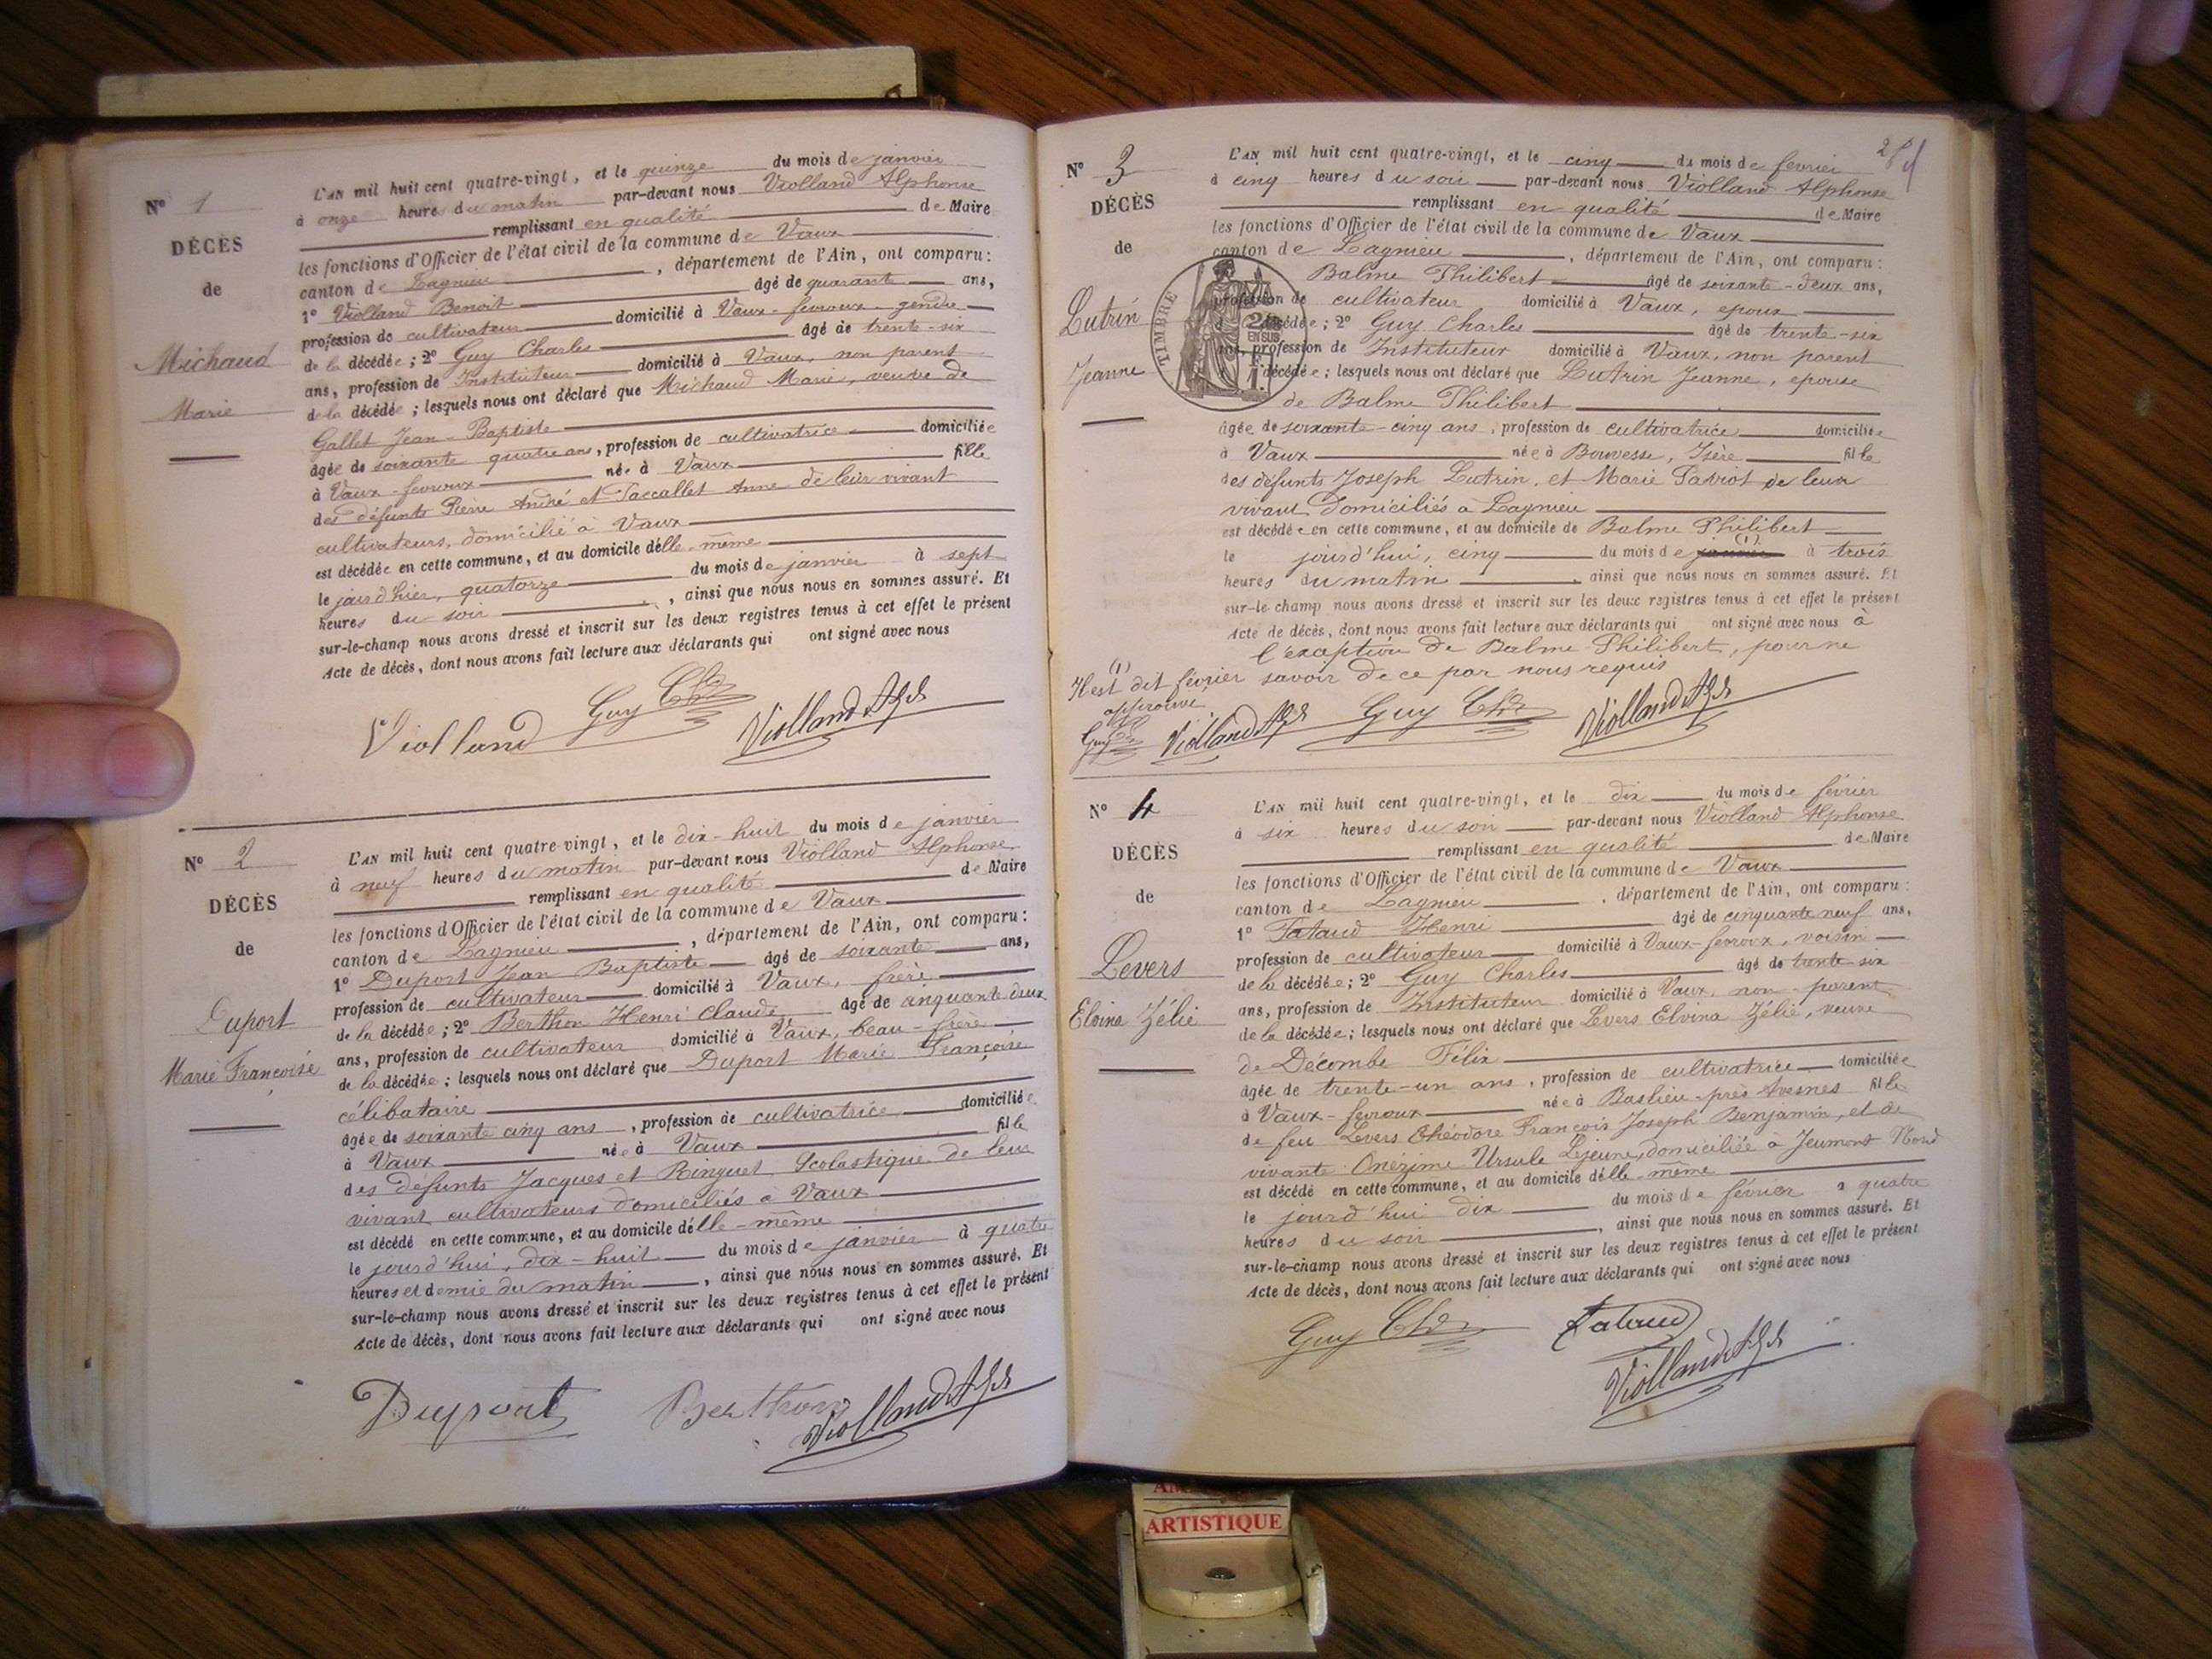 N° 1
DÉCÈS
de
Michaud
Marie
L'AN mil huit cent quatre-vingt, et le quinze du mois de janvier
à onze heures du matin par-devant nous Violland Alphonse
remplissant en qualité de Maire
les fonctions d'Officier de l'état civil de la commune de Vaux
canton de Lagnieu, département de l'Ain, ont comparu:
1° Violland Benoit âgé de quarante ans,
profession de cultivateur domicilié à Vaux-fevroux, gendre
de la décédée; 2° Guy Charles âgé de trente-six
ans, profession de Instituteur domicilié à Vaux, non parent
de la décédée; lesquels nous ont déclaré que Michaud Marie, veuve de
Gallet Jean-Baptiste
âgée de soixante quatre ans, profession de cultivatrice domiciliée
à Vaux-fevroux née à Vaux fille
des défunts Pierre André et Anne de leur vivant
cultivateurs, domicilié à Vaux
est décédée en cette commune, et au domicile d'elle-même
le jour d'hier, quatorze du mois de janvier à sept
heures du soir, ainsi que nous nous en sommes assuré. Et
sur-le-champ nous avons dressé et inscrit sur les deux registres tenus à cet effet le présent
Acte de décès, dont nous avons fait lecture aux déclarants qui ont signé avec nous
Violland Guy Chs Violland Aph
N° 2
DÉCÈS
de
Duport
Marie Françoise
L'AN mil huit cent quatre-vingt, et le dix-huit du mois de janvier
à neuf heures du matin par-devant nous Violland Alphonse
remplissant en qualité de Maire
les fonctions d'Officier de l'état civil de la commune de Vaux
canton de Lagnieu, département de l'Ain, ont comparu:
1° Duport Jean Baptiste âgé de soixante ans,
profession de cultivateur domicilié à Vaux, frère
de la décédée; 2° Berthon Henri Claude âgé de cinquante deux
ans, profession de cultivateur domicilié à Vaux, beau-frère
de la décédée; lesquels nous ont déclaré que Duport Marie Françoise
célibataire
âgée de soixante cinq ans, profession de cultivatrice domiciliée
à Vaux née à Vaux fille
des défunts Jacques et Ringuet Scolastique de leur
vivant cultivateurs domiciliés à Vaux
est décédé en cette commune, et au domicile d'elle-même
le jourd'hui, dix-huit du mois de janvier à quatre
heures et demie du matin, ainsi que nous nous en sommes assuré. Et
sur-le-champ nous avons dressé et inscrit sur les deux registres tenus à cet effet le présent
Acte de décès, dont nous avons fait lecture aux déclarants qui ont signé avec nous
Duport Berthon Violland Aph
N° 3
DÉCÈS
de
Lutrin
Jeanne
L'AN mil huit cent quatre-vingt, et le cinq du mois de fevrier
à cinq heures du soir par-devant nous Violland Alphonse
remplissant en qualité de Maire
les fonctions d'Officier de l'état civil de la commune de Vaux
canton de Lagnieu, département de l'Ain, ont comparu:
Balme Philibert âgé de soixante-deux ans,
profession de cultivateur domicilié à Vaux, epoux
décédée; 2° Guy Charles âgé de trente-six
ans, profession de Instituteur domicilié à Vaux, non parent
décédée; lesquels nous ont déclaré que Lutrin Jeanne, epouse
de Balme Philibert
âgée de soixante-cinq ans, profession de cultivatrice domiciliée
à Vaux née à Bouvesse, Isère fille
des défunts Joseph Lutrin, et Marie Paviot de leur
vivant domiciliés à Lagnieu
est décédée en cette commune, et au domicile de Balme Philibert
le jourd'hui, cinq du mois de janvier (1) à trois
heures du matin, ainsi que nous nous en sommes assuré. Et
sur-le-champ nous avons dressé et inscrit sur les deux registres tenus à cet effet le présent
Acte de décès, dont nous avons fait lecture aux déclarants qui ont signé avec nous à
l'exaption de Balme Philibert, pour ne
savoir de ce par nous requis
(1)
Il est dit février
approuvé
Guy Violland Aph Guy Chs Violland Aph
TIMBRE
2/10
EN SUS
N° 4
DÉCÈS
de
Levers
Elvina Zélie
L'AN mil huit cent quatre-vingt, et le dix du mois de février
à six heures du soir par-devant nous Violland Alphonse
remplissant en qualité de Maire
les fonctions d'Officier de l'état civil de la commune de Vaux
canton de Lagnieu, département de l'Ain, ont comparu:
1° Fataud Henri âgé de cinquante neuf ans,
profession de cultivateur domicilié à Vaux-fevroux, voisin
de la décédée; 2° Guy Charles âgé de trente six
ans, profession de Instituteur domicilié à Vaux, non-parent
de la décédée; lesquels nous ont déclaré que Levers Elvina Zélie, veuve
de Décombe Félix
âgée de trente-un ans, profession de cultivatrice domiciliée
à Vaux-fevroux née à Baslieu-près Avesnes fille
de feu Levers Théodore François Joseph Benjamin, et de
vivante Onézime Ursule Lejeune, domiciliée à Jeumont Nord
est décédé en cette commune, et au domicile d'elle-même
le jourd'hui dix du mois de février à quatre
heures du soir, ainsi que nous nous en sommes assuré. Et
sur-le-champ nous avons dressé et inscrit sur les deux registres tenus à cet effet le présent
Acte de décès, dont nous avons fait lecture aux déclarants qui ont signé avec nous
Guy Chs Fataud
Violland Aph
ARTISTIQUE